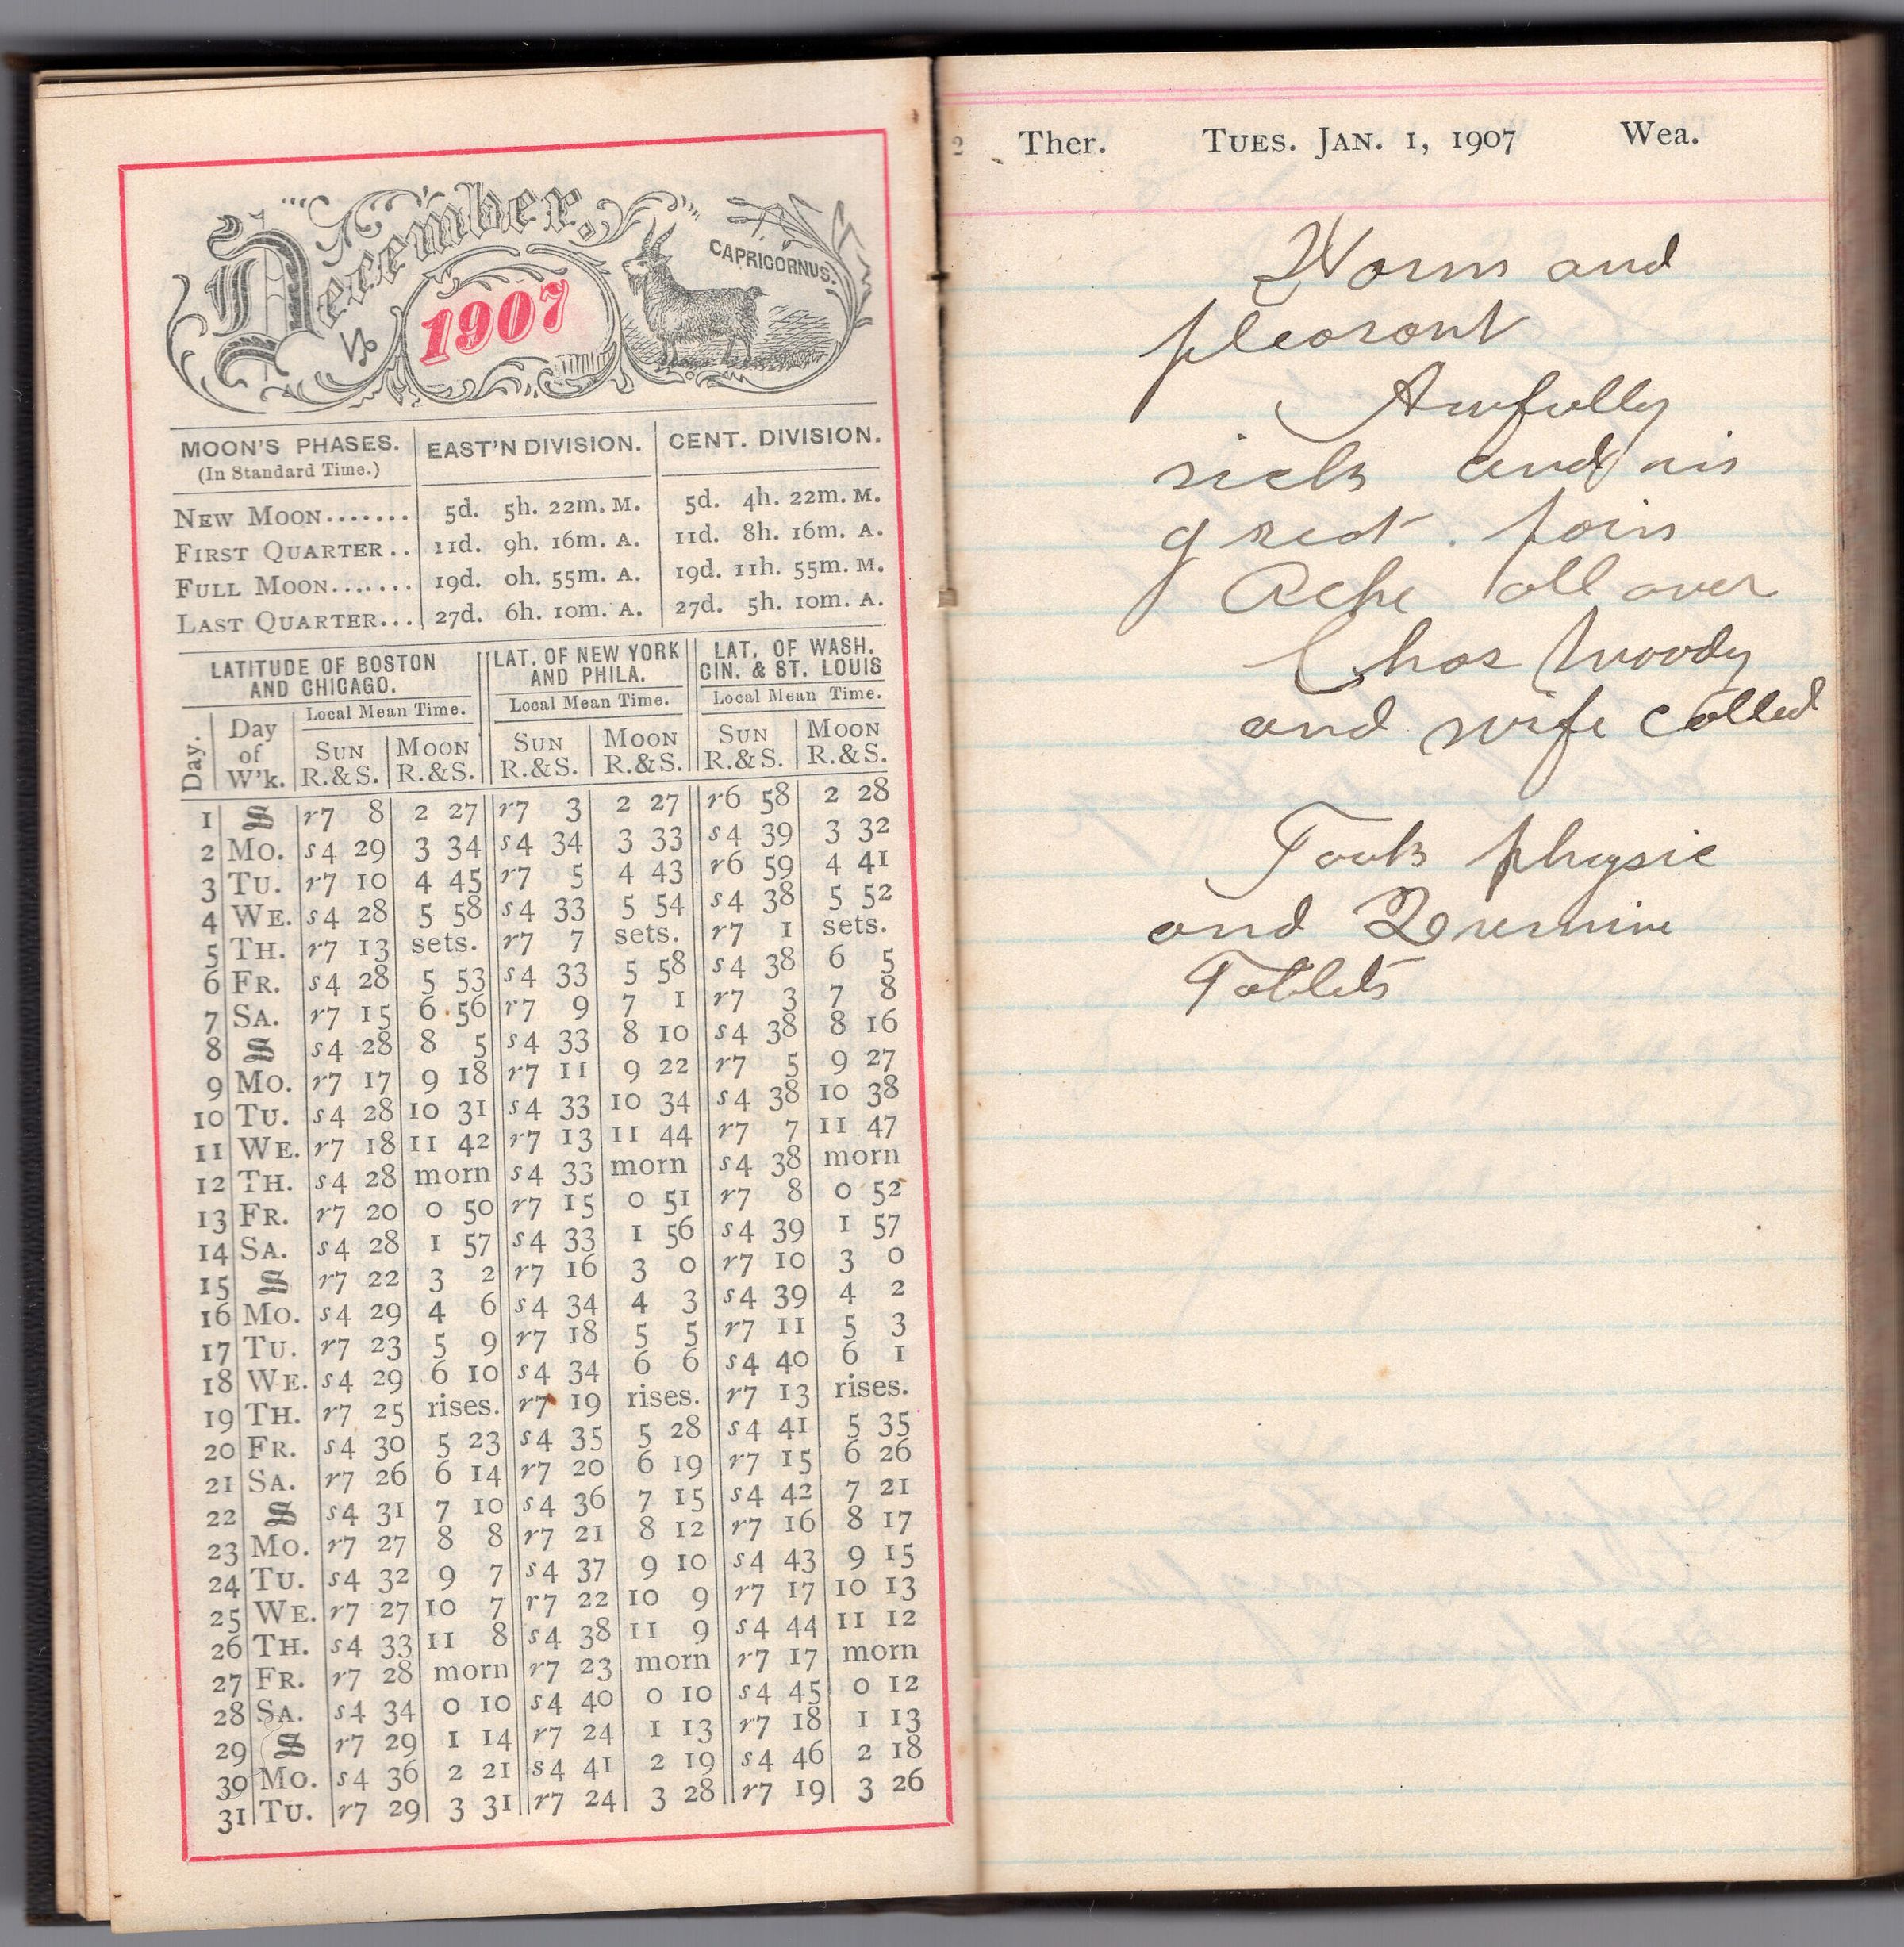 December,
CAPRICORNUS.
1907
MOON'S PHASES. EAST'N DIVISION. CENT. DIVISION.
(In Standard Time.)
NEW MOON....... 5d. 5h. 22m. M. 5d. 4h. 22m. M.
FIRST QUARTER.. 11d. 9h. 16m. A. 11d. 8h. 16m. A.
FULL MOON....... 19d. 0h. 55m. A. 19d. 11h. 55m. M.
LAST QUARTER... 27d. 6h. 10m. A. 27d. 5h. 10m. A.
LATITUDE OF BOSTON AND CHICAGO. LAT. OF NEW YORK AND PHILA. LAT. OF WASH. CIN. & ST. LOUIS
Local Mean Time. Local Mean Time. Local Mean Time.
Day. Day of W'k. SUN R.&S. MOON R.&S. SUN R.&S. MOON R.&S. SUN R.&S. MOON R.&S.
1 S r7 8 2 27 r7 3 2 27 r6 58 2 28
2 MO. s4 29 3 34 s4 34 3 33 s4 39 3 32
3 TU. r7 10 4 45 r7 5 4 43 r6 59 4 41
4 WE. s4 28 5 58 s4 33 5 54 s4 38 5 52
5 TH. r7 13 sets. r7 7 sets. r7 1 sets.
6 FR. s4 28 5 53 s4 33 5 58 s4 38 6 5
7 SA. r7 15 6 56 r7 9 7 1 r7 3 7 8
8 S s4 28 8 5 s4 33 8 10 s4 38 8 16
9 MO. r7 17 9 18 r7 11 9 22 r7 5 9 27
10 TU. s4 28 10 31 s4 33 10 34 s4 38 10 38
11 WE. r7 18 11 42 r7 13 11 44 r7 7 11 47
12 TH. s4 28 morn s4 33 morn s4 38 morn
13 FR. r7 20 0 50 r7 15 0 51 r7 8 0 52
14 SA. s4 28 1 57 s4 33 1 56 s4 39 1 57
15 S r7 22 3 2 r7 16 3 0 r7 10 3 0
16 MO. s4 29 4 6 s4 34 4 3 s4 39 4 2
17 TU. r7 23 5 9 r7 18 5 5 r7 11 5 3
18 WE. s4 29 6 10 s4 34 6 6 s4 40 6 1
19 TH. r7 25 rises. r7 19 rises. r7 13 rises.
20 FR. s4 30 5 23 s4 35 5 28 s4 41 5 35
21 SA. r7 26 6 14 r7 20 6 19 r7 15 6 26
22 S s4 31 7 10 s4 36 7 15 s4 42 7 21
23 MO. r7 27 8 8 r7 21 8 12 r7 16 8 17
24 TU. s4 32 9 7 s4 37 9 10 s4 43 9 15
25 WE. r7 27 10 7 r7 22 10 9 r7 17 10 13
26 TH. s4 33 11 8 s4 38 11 9 s4 44 11 12
27 FR. r7 28 morn r7 23 morn r7 17 morn
28 SA. s4 34 0 10 s4 40 0 10 s4 45 0 12
29 S r7 29 1 14 r7 24 1 13 r7 18 1 13
30 MO. s4 36 2 21 s4 41 2 19 s4 46 2 18
31 TU. r7 29 3 31 r7 24 3 28 r7 19 3 26
2 Ther. TUES. JAN. 1, 1907 Wea.
Warm and
pleasant
Awfully
sick and in
great pain
Ache all over
Chas Woody
and wife called
Took physic
and
Tablets